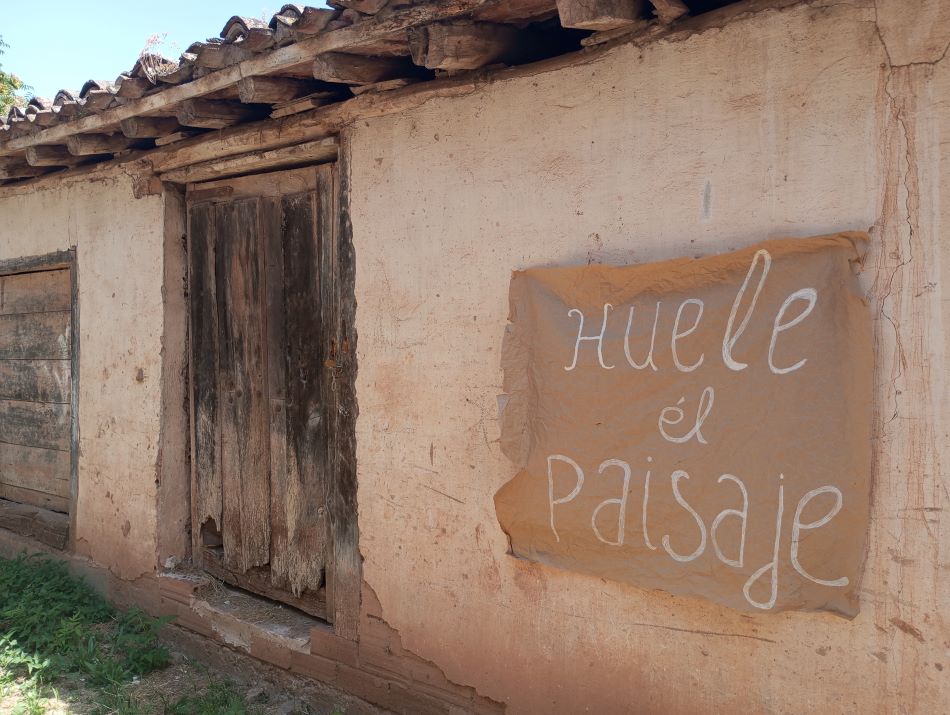 Huele
él
Paisaje